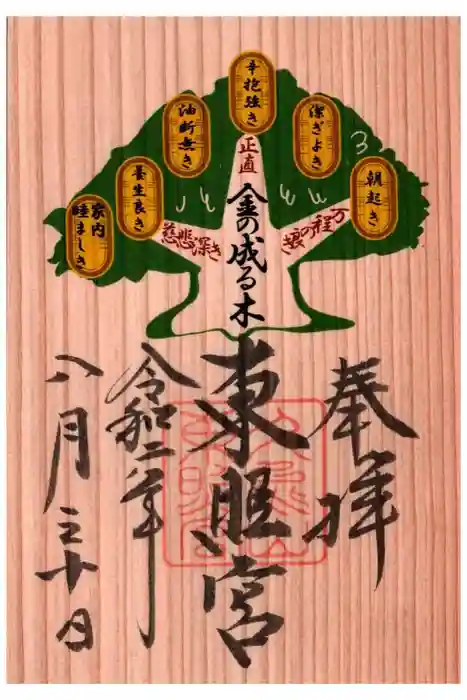 朝起き
潔ぎよき
辛抱強き
油断無き
養生良き
家内
睦ましき
万程の良き
正直
慈悲深き
金の成る木
奉拝
東照宮
令和二年
八月三十日